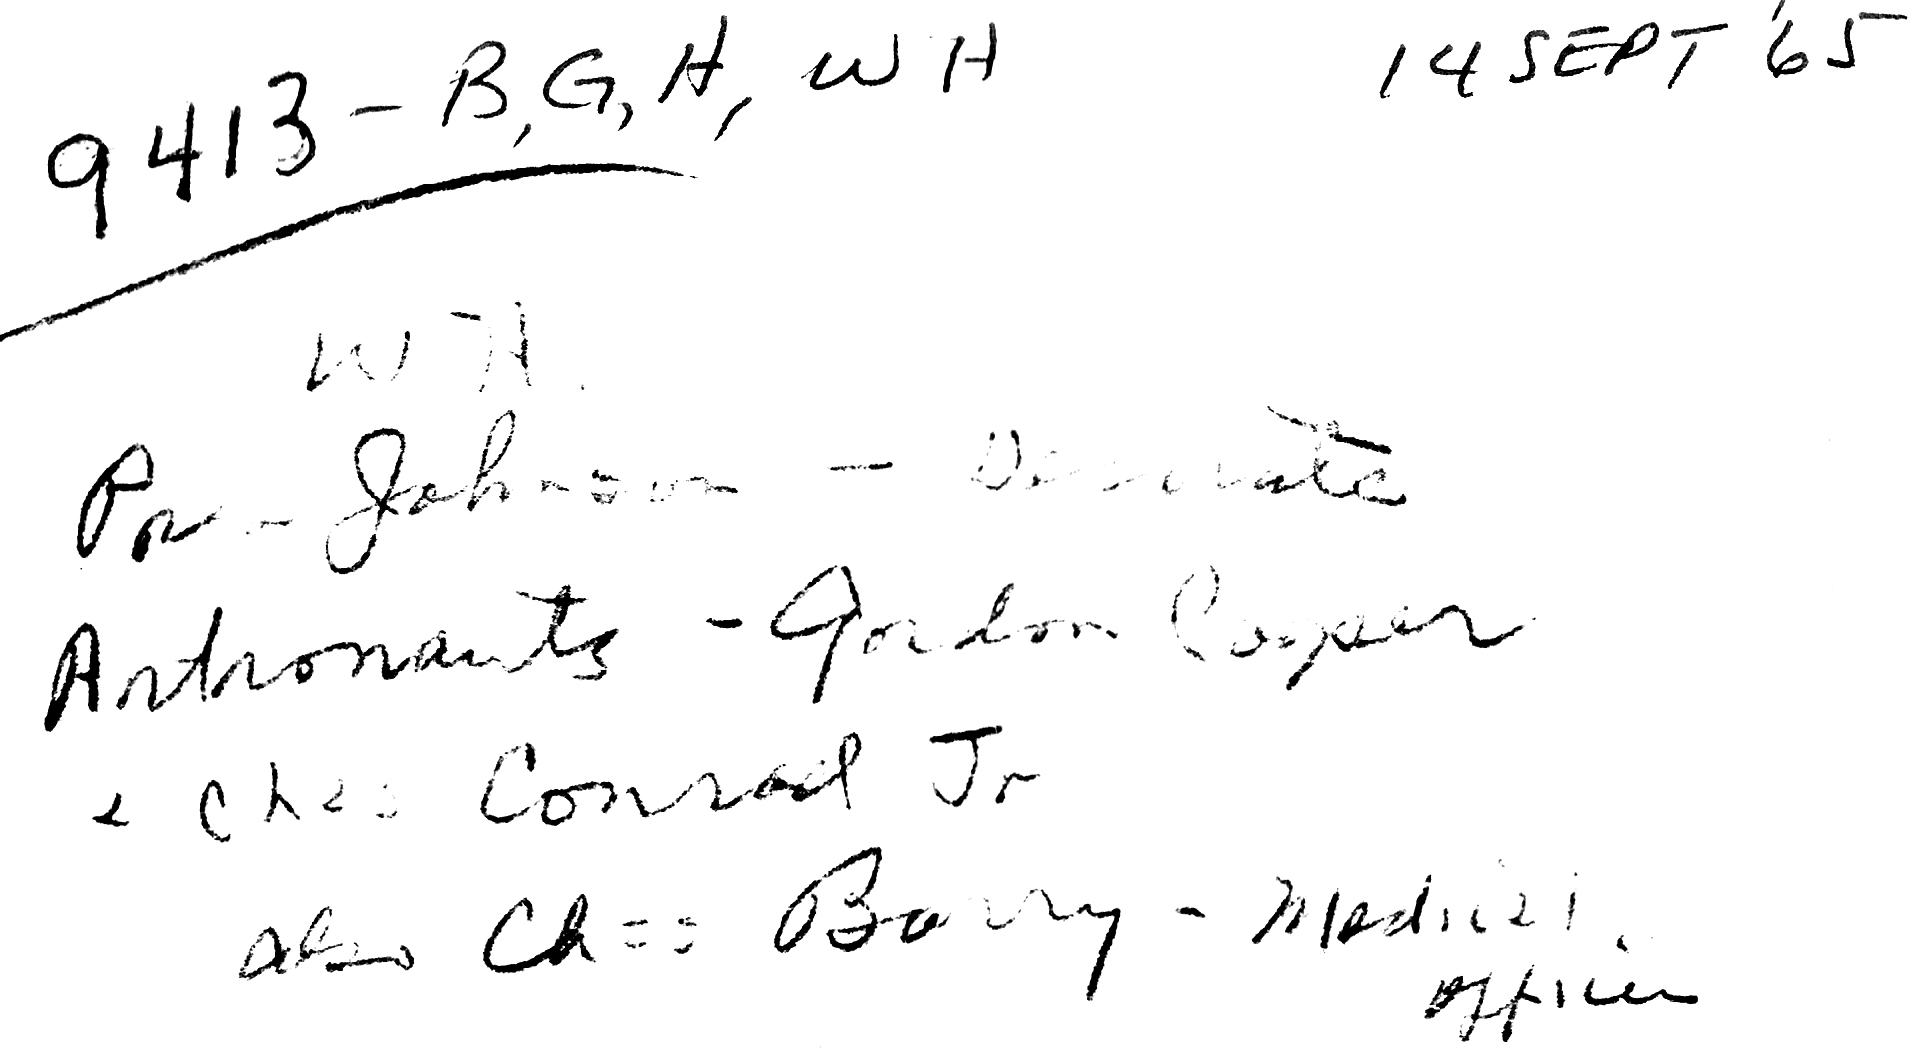 9413 - B, G, H, WH 14 SEPT '65
WH.
Pr - Johnson - Decorate
Astronauts - Gordon Cooper
& Chas Conrad Jr
also Chas Barry - Medical
officer